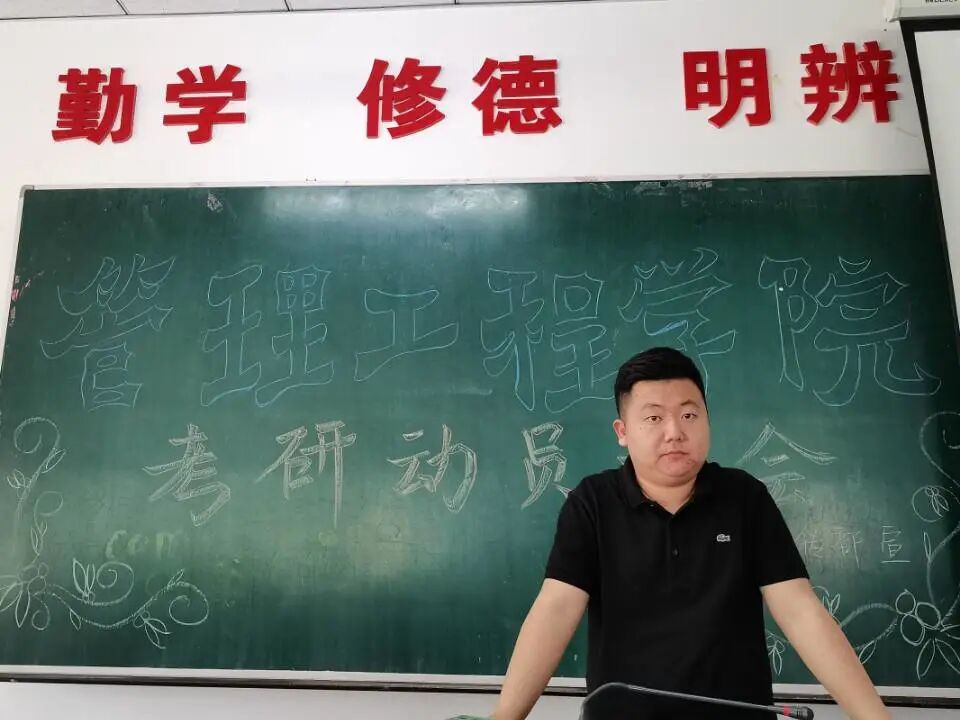 勤学 修德 明辨
管理工程学院
考研动员 会
宣